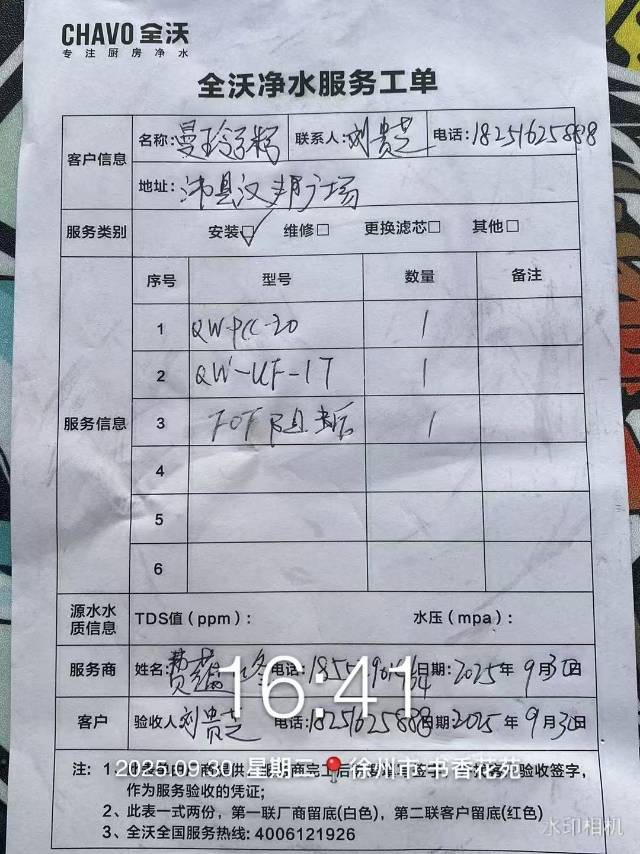 CHAVO 全沃
专注厨房净水
全沃净水服务工单
客户信息
名称: 曼玲 联系人: 刘贵芝 电话: 18251625888
地址: 沛县汉 广场
服务类别 安装☑ 维修□ 更换滤芯□ 其他□
服务信息
序号 型号 数量 备注
1 QW-PCC-20 1
2 QW-UF-1T 1
3 1
4
5
6
源水水质信息 TDS值（ppm）: 水压（mpa）:
服务商 姓名: 电话: 日期: 2025年 9月30日
客户 验收人 刘贵芝 电话: 18251625888 日期 2025年 9月30日
16:41
2025.09.30 星期二 徐州市·书香花苑
注: 1、 验收签字，
作为服务验收的凭证;
2、此表一式两份，第一联厂商留底(白色)，第二联客户留底(红色)
3、全沃全国服务热线: 4006121926
水印相机